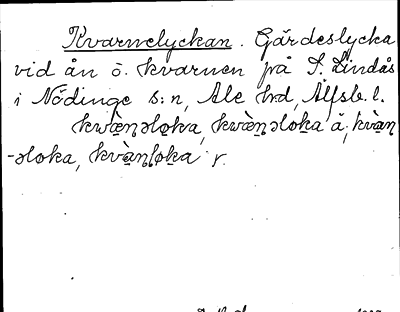 Kvarnelyckan. Gärdeslycka
vid ån ö. kvarnen på S. Lindås
i Nödinge s:n, Ale hrd, Älfsb. l.
kwàṉəlo̱ka, kwàṉəloka å, kvàn
-əloka, kvàṉlo̱ka r.